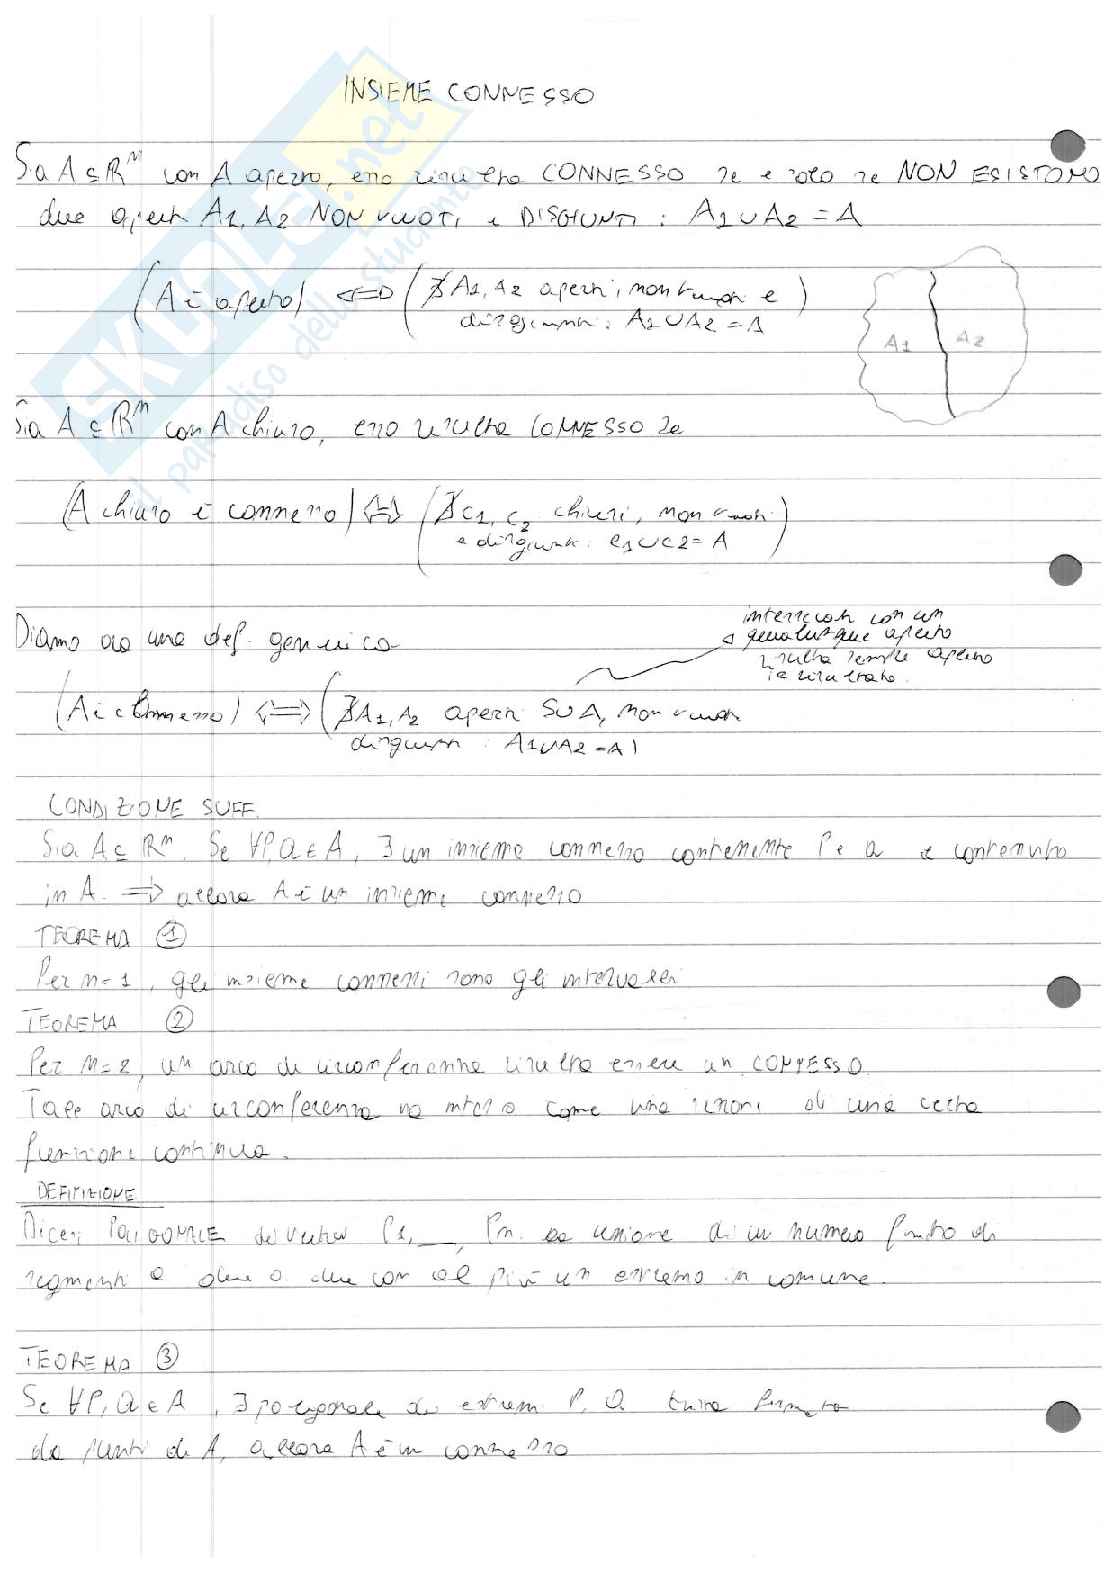 INSIEME CONNESSO
Sia A ⊆ ℝⁿ con A aperto, esso risulta CONNESSO se e solo se NON ESISTONO
due aperti A1, A2 NON vuoti e DISGIUNTI : A1 ∪ A2 = A
(A è aperto) ⇔ (∄ A1, A2 aperti, non vuoti e
disgiunti : A1 ∪ A2 = A)
A1 A2
Sia A ⊆ ℝⁿ con A chiuso, esso risulta CONNESSO se
(A chiuso è connesso) ⇔ (∄ C1, C2 chiusi, non vuoti
e disgiunti : C1 ∪ C2 = A)
intersecati con un
qualunque aperto
risulta sempre aperto
il risultato.
Diamo ora una def. generica
(A è connesso) ⇔ (∄ A1, A2 aperti SU A, non vuoti
disgiunti : A1 ∪ A2 = A)
CONDIZIONE SUFF.
Sia A ⊆ ℝⁿ. Se ∀P,Q ∈ A, ∃ un insieme connesso contenente P e Q e contenuto
in A. ⇒ allora A è un insieme connesso
TEOREMA 1
Per n=1, gli insieme connessi sono gli intervalli
TEOREMA 2
Per n=2, un arco di circonferenza risulta essere un CONNESSO.
Tale arco di circonferenza va inteso come una unione di una certa
funzione continua.
DEFINIZIONE
Dicesi POLIGONALE di vertici P1, __, Pn. unione di un numero finito di
segmenti a due a due con al più un estremo in comune.
TEOREMA 3
Se ∀P,Q ∈ A, ∃ poligonale di estremi P, Q tutta formata
da punti di A, allora A è un connesso
SKUOLA.net
il paradiso dello studente